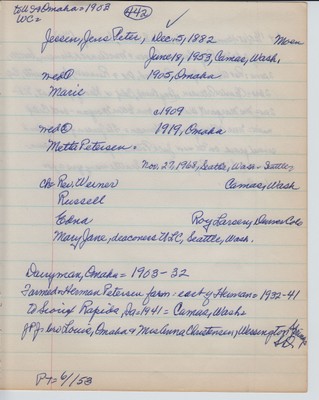 to US & Omaha = 1903
WC =
442
Jessen, Jens Peter, Dec. 5, 1882 Moen
June 18, 1953, Camas, Wash,
med① 1905, Omaha
Marie
c1909
med② 1919, Omaha
Metta Petersen.
Nov. 27, 1968, Seattle, Wash = Seattle
ch= Rev. Verner Camas, Wash
Russell
Edna Roy Larsen, Denver Colo
Mary Jane, deaconess ULC, Seattle, Wash.
Dairyman, Omaha = 1903 - 32
Farmed = Herman Petersen farm - east of Herman = 1932-41
to Sioux Rapids, Ia = 1941 = Camas, Wash =
JPJ's bro Louis, Omaha & Mrs Anna Christensen, Wessington Springs S.D.
PT = 6/153